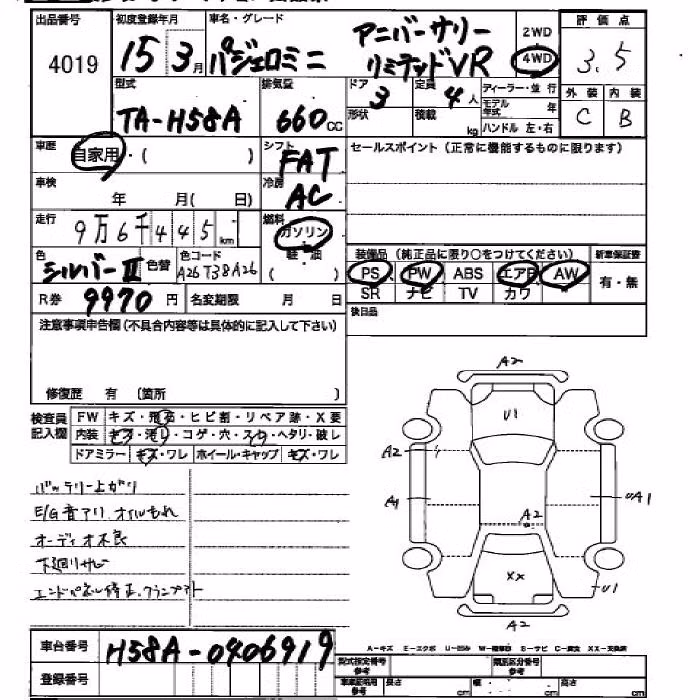 出品番号 4019
初度登録年月 15 3月
車名・グレード パジェロミニ アニバーサリーリミテッドVR
2WD
4WD
評価点 3.5
外装 内装
C B
型式 TA-H58A
排気量 660cc
ドア 3
定員 4人
形状
積載 kg
ディーラー・並行
モデル年式 年
ハンドル 左・右
車歴 自家用・( )
シフト FAT
セールスポイント(正常に機能するものに限ります)
車検 年 月( 日)
冷房 AC
走行 9万6千445km
燃料 ガソリン
軽・油
( )
色 シルバーII 色替
色コード A26 T38A26
装備品(純正品に限り○をつけてください)
新車保証書
PS PW ABS エアB AW
SR ナビ TV カワ
有・無
R券 9970円
名変期限 月 日
後日品
注意事項申告欄(不具合内容等は具体的に記入して下さい)
修復歴 有 (箇所 )
検査員記入欄
FW キズ・飛石・ヒビ割・リペア跡・X要
内装 キズ・汚レ・コゲ・穴・スレ・ヘタリ・破レ
ドアミラー キズ・ワレ ホイール・キャップ キズ・ワレ
バッテリー上がり
E/G音アリ.オイルもれ
オーディオ不良
下廻りサビ
エンドパネル修正.クランプアト
A2
U1
A2
A1
UA1
A2
XX
U1
A2
車台番号 H58A-0406919
登録番号
A-キズ E-エクボ U-凹み W-補修跡 S-サビ C-腐食 XX-交換済
型式指定番号 参考
類別区分番号 参考
車庫証明用 参考 長さ cm 幅 cm 高さ cm